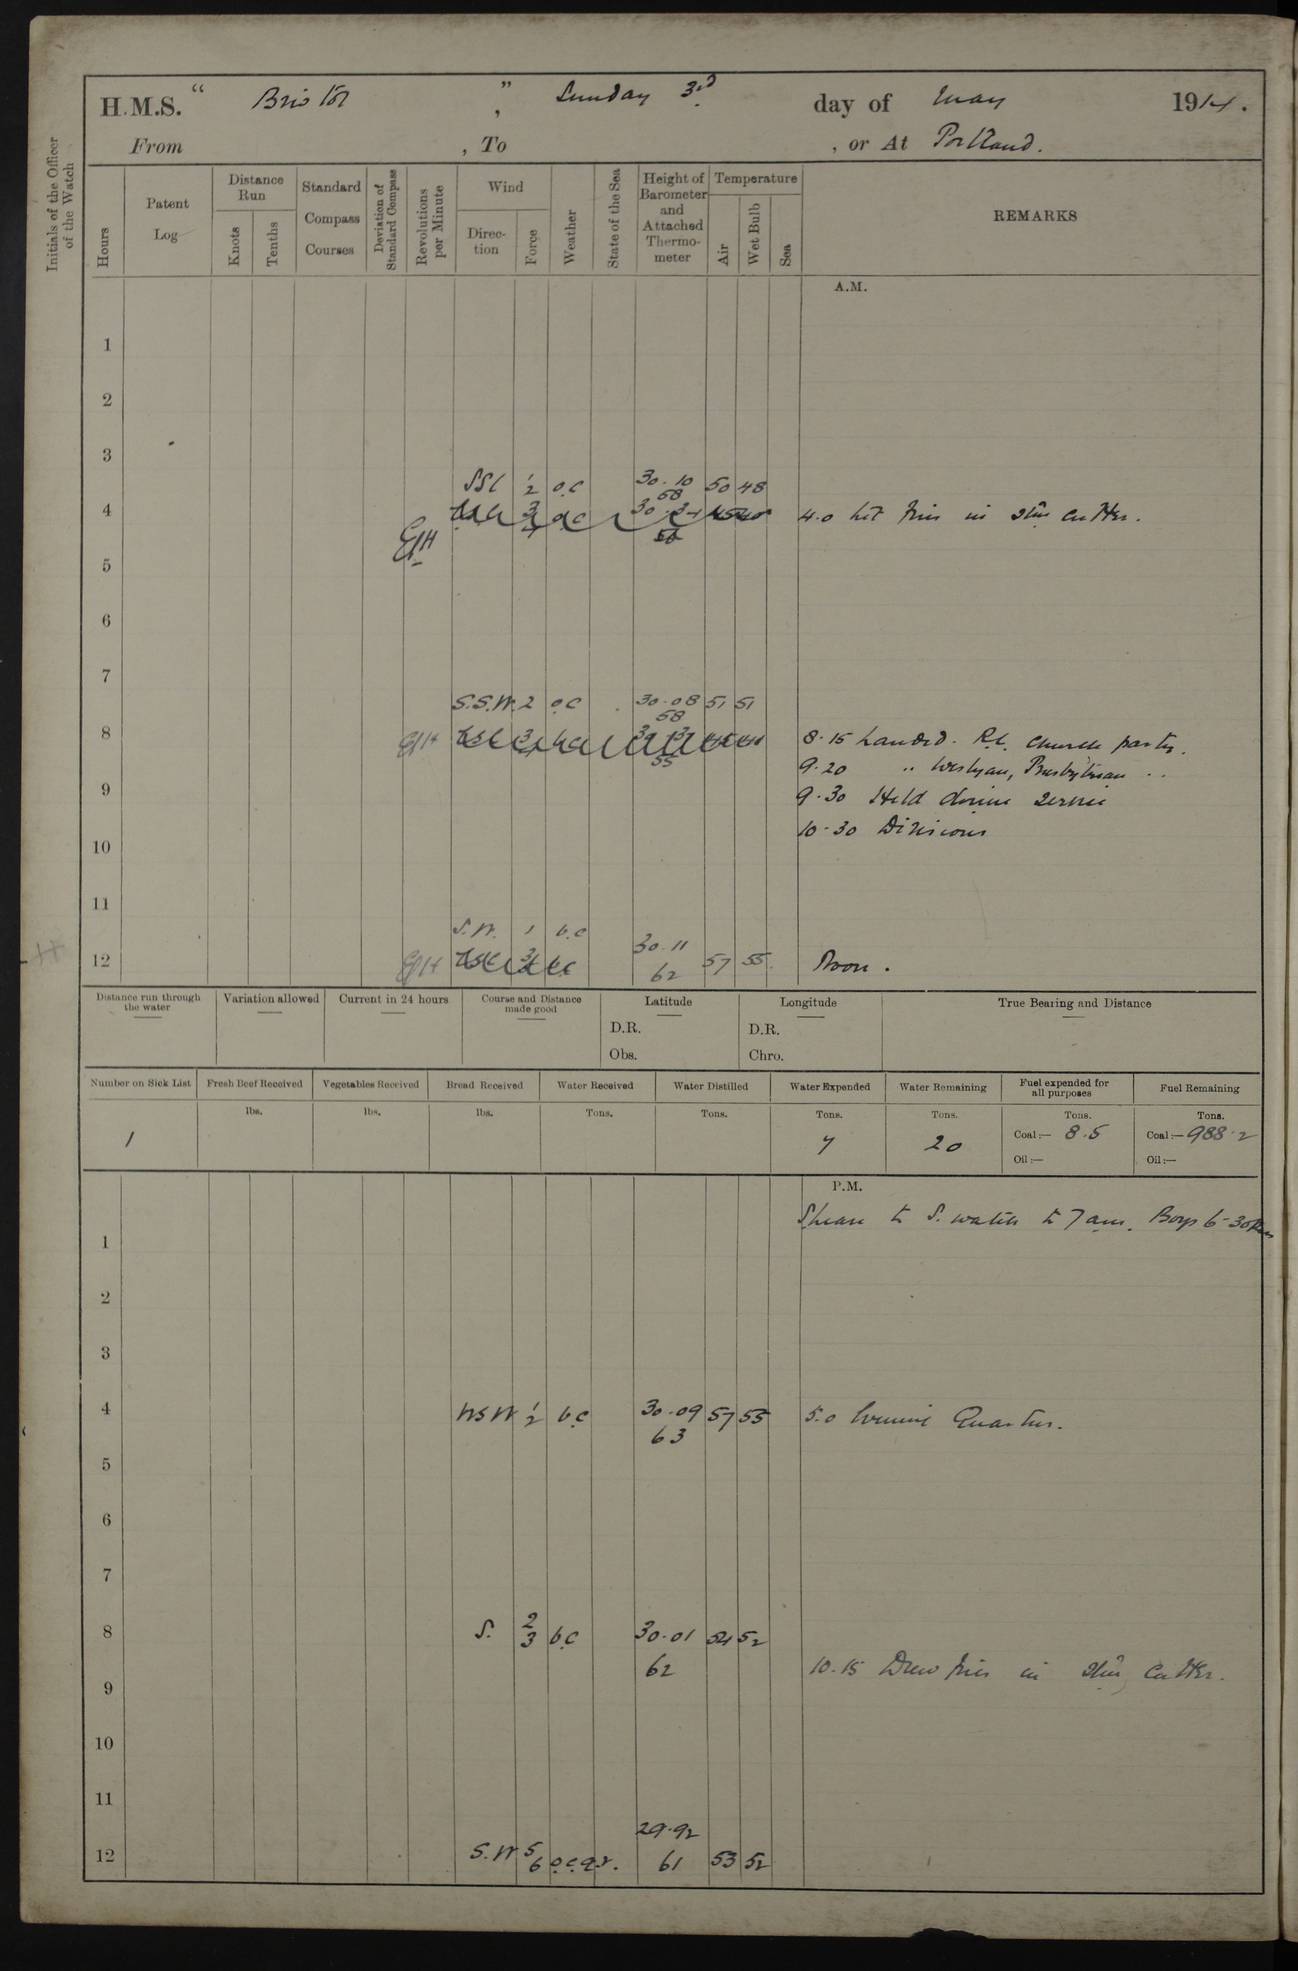 H.M.S. “ Bristol ”, Sunday 3rd day of May 1914.
From , To , or At Portland.
Initials of the Officer of the Watch
Hours
Patent Log
Distance Run
Knots
Tenths
Standard Compass Courses
Deviation of Standard Compass
Revolutions per Minute
Wind
Direction
Force
Weather
State of the Sea
Height of Barometer and Attached Thermometer
Temperature
Air
Wet Bulb
Sea
REMARKS
A.M.
1
2
3
1/2 o.c 30.10 50 48
58
4 4.0 Lit fires in Stm Cutter.
5
6
7
S.S.W. 2 o.c 30.08 51 51
58
8 8.15 Landed R.C. Church party.
9.20 „ Weslyan, Presbyterian ..
9 9.30 Held divine service
10.30 Divisions
10
11
S.W. 1 b.c
30.11
12 62 57 55 Noon.
Distance run through the water
Variation allowed
Current in 24 hours
Course and Distance made good
Latitude
D.R.
Obs.
Longitude
D.R.
Chro.
True Bearing and Distance
Number on Sick List
Fresh Beef Received
Vegetables Received
Bread Received
Water Received
Water Distilled
Water Expended
Water Remaining
Fuel expended for all purposes
Fuel Remaining
lbs. lbs. lbs. Tons. Tons. Tons. Tons. Tons. Tons.
1 7 20 Coal:— 8.5 Coal:— 988.2
Oil:— Oil:—
P.M.
to S. watch to 7 am. Boys 6-30
1
2
3
4 WSW 1/2 b.c 30.09 57 55 5.0 Evening Quarters.
63
5
6
7
8 S. 2/3 b.c 30.01 54 52
62 10.15 Drew fires in Stm Cutter.
9
10
11
29.92
12 S.W 5/6 o.c.q.r. 61 53 52